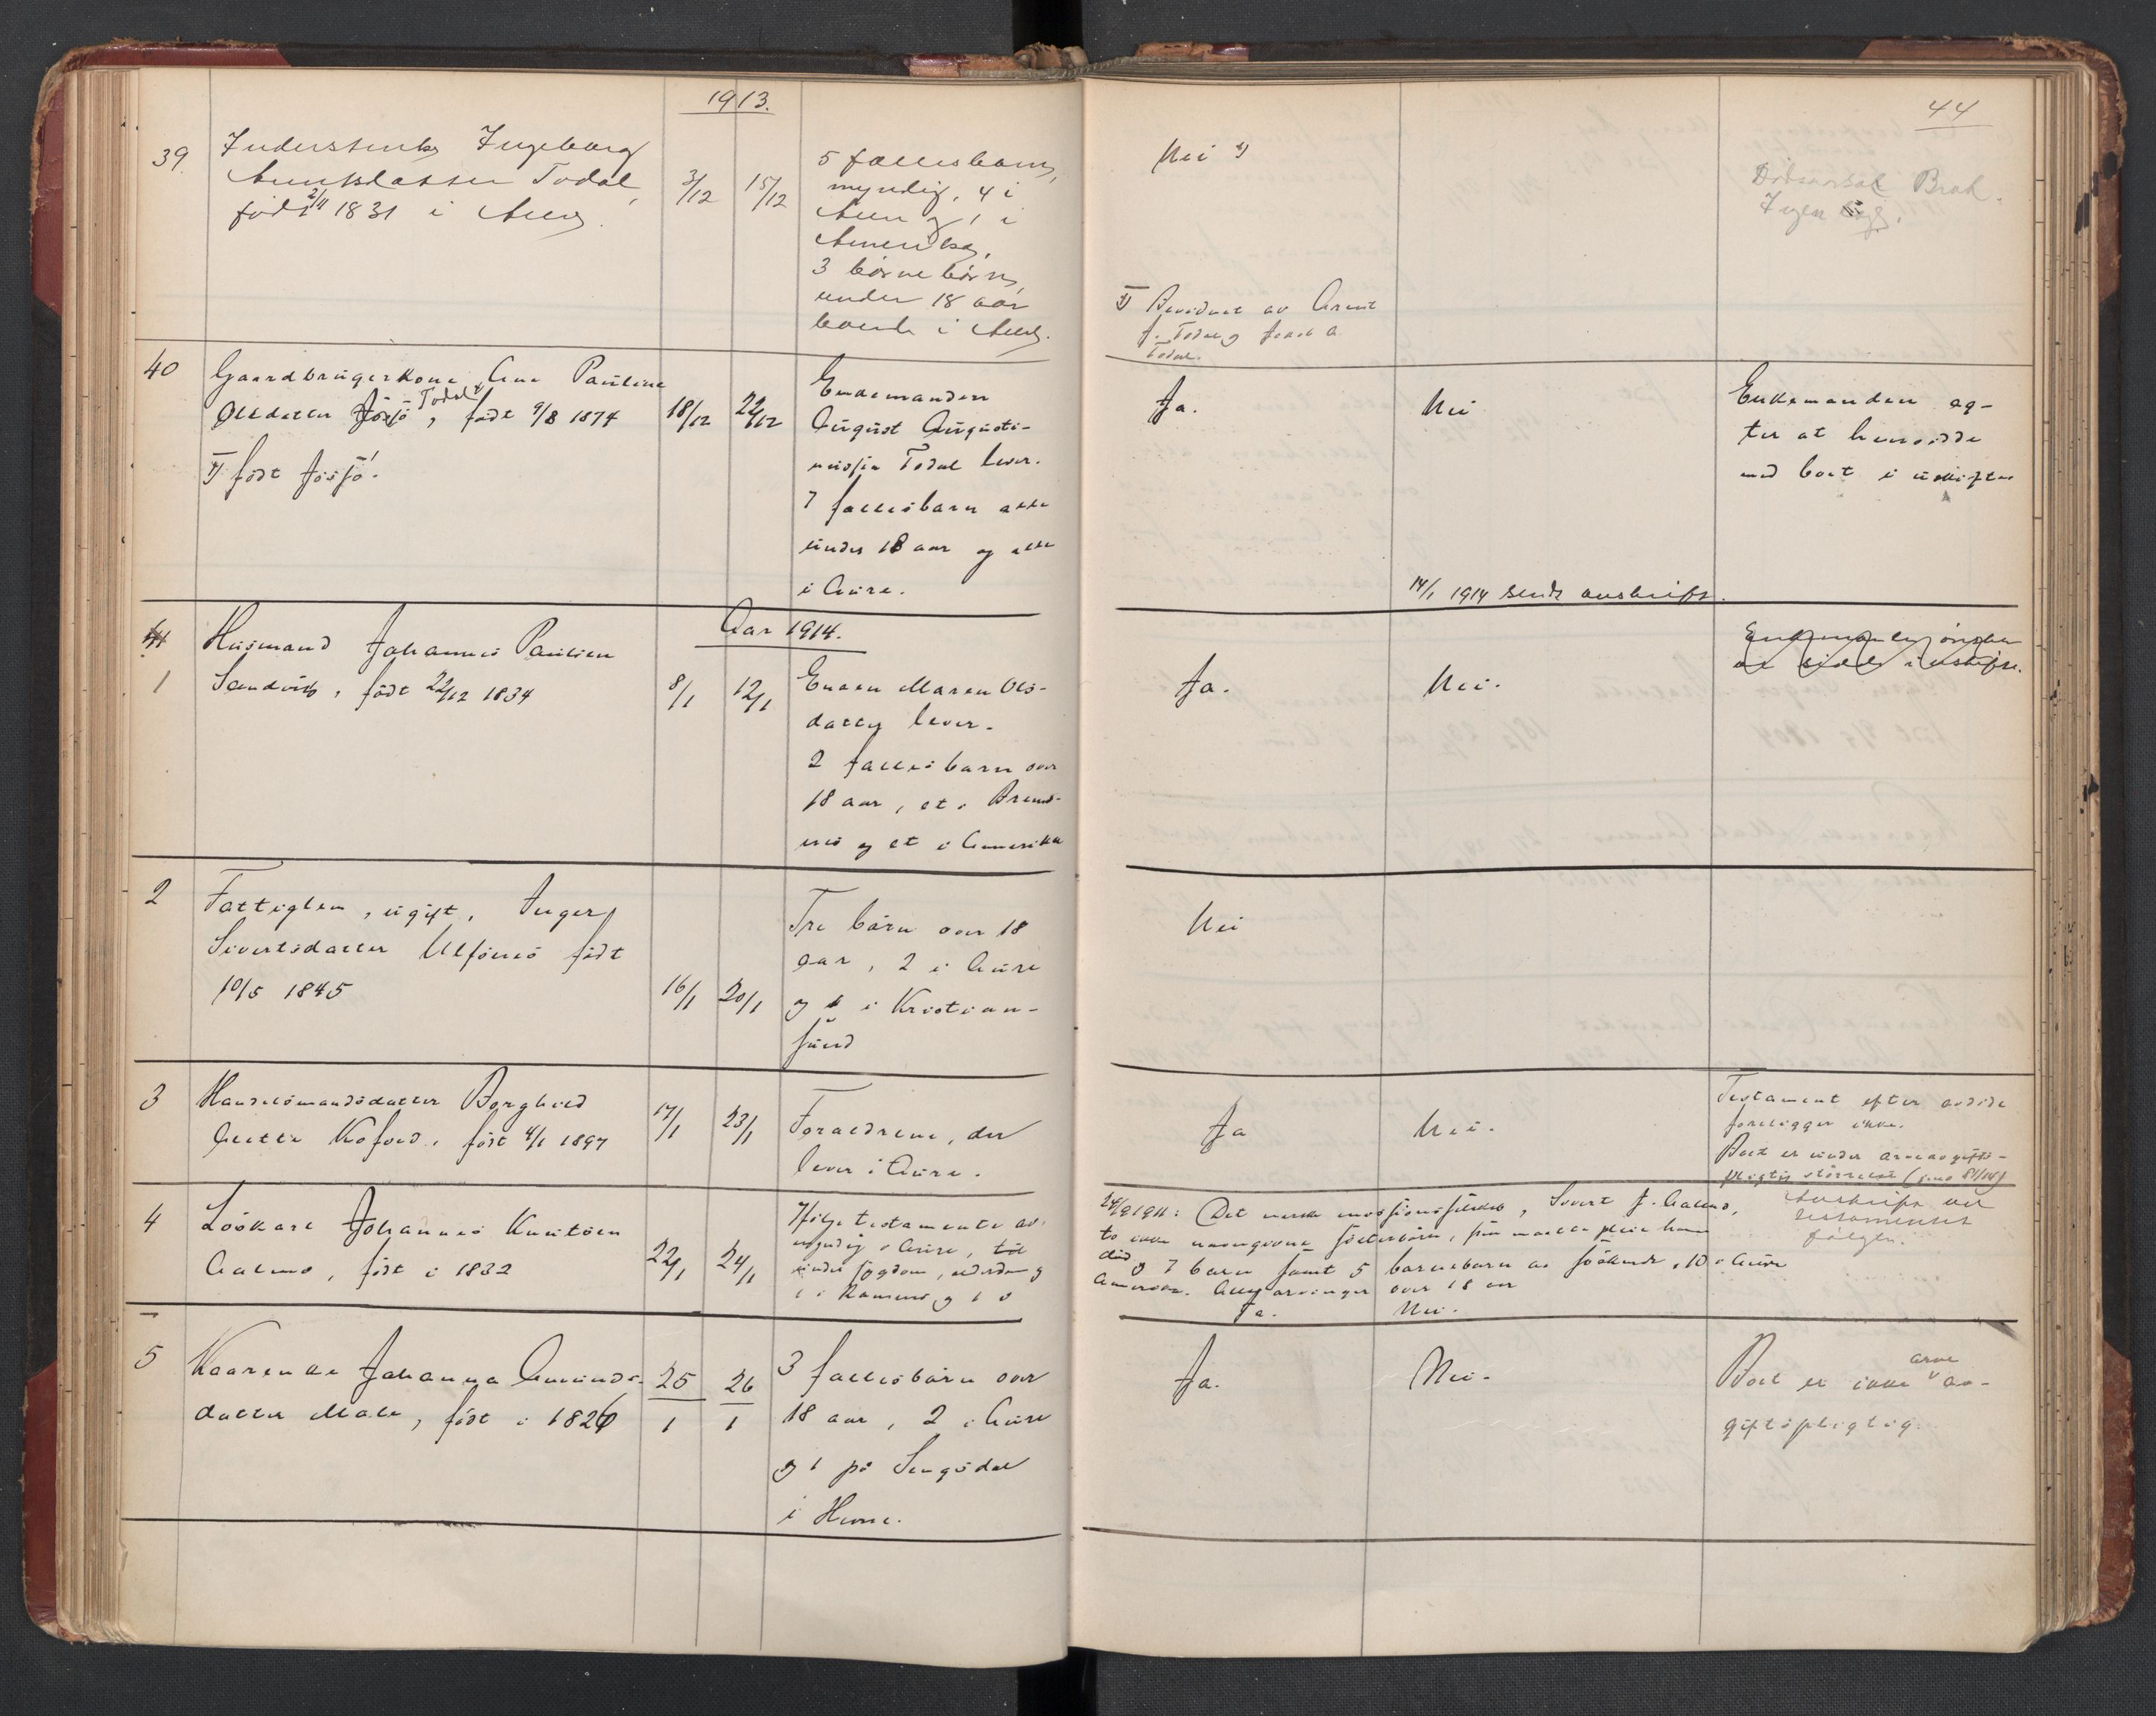 1913.
44
39
Ingeborg
Todal,
født 2/11 1831 i Aure.
3/12 15/12
5 fællesbarn,
myndig, 4 i
Aure og 1 i
Amerika,
3 børnebørn,
under 18 aar
boende i Aure.
Nei x)
x) Bevidnet av Arent
J. Todal og A.
Todal.
Dødsaarsak Brok.
Ingen
40
Gaardbrugerkone Ane Pauline
Olsdatter Jøssjø Todal x), født 9/8 1874
x) født Jøssjø.
18/12 22/12
Enkemanden
August Augusti-
nussen Todal lever.
7 fællesbarn alle
under 18 aar og alle
i Aure.
Ja.
Nei
Enkemanden ag-
ter at hensidde
med boet i uskiftet
14/1 1914 sendt avskrift.
Aar 1914.
41
1
Husmand Johannes Paulsen
Sandvik, født 22/12 1834
8/1 12/1
Enken Maren Ols-
datter lever.
2 fællesbarn over
18 aar, et i Brems-
nes og et i Amerika
Ja.
Nei.
Enkemanden ønsker
at sidde i uskifte.
2
Fattiglem, ugift, Inger
Sivertsdatter Ulfsnes født
10/5 1845
16/1 20/1
Tre børn over 18
aar, 2 i Aure
og 1 i Kristian-
sund
Nei
3
Handelsmandsdatter Borghild
Anette Kofoed, født 4/1 1897
17/1 23/1
Forældrene, der
lever i Aure.
Ja
Nei.
Testament efter avdøde
foreligger ikke.
Boet er under arveavgifts-
pligtig størrelse
4
Løskar Johannes Knutsen
Aalmo, født i 1832
22/1 24/1
Ifølge testamente av
24/9 1911: Det norske missionsselskab, Sivert J. Aalmo,
to ikke navngivne søsterbørn, som maatte pleie ham
og 7 barn samt 5 barnebarn av søskende, 10 i Aure
Amerika. Alle arvinger over 18 aar
Ja.
Nei.
Avskrift av
testamentet
følger.
5
Kaarenke Johanna Amunds-
datter Male, født i 1826
25/1 26/1
3 fællesbørn over
18 aar, 2 i Aure
og 1 på Sengsdal
i Hevne.
Ja.
Nei.
Boet er ikke arve av-
giftspligtig.